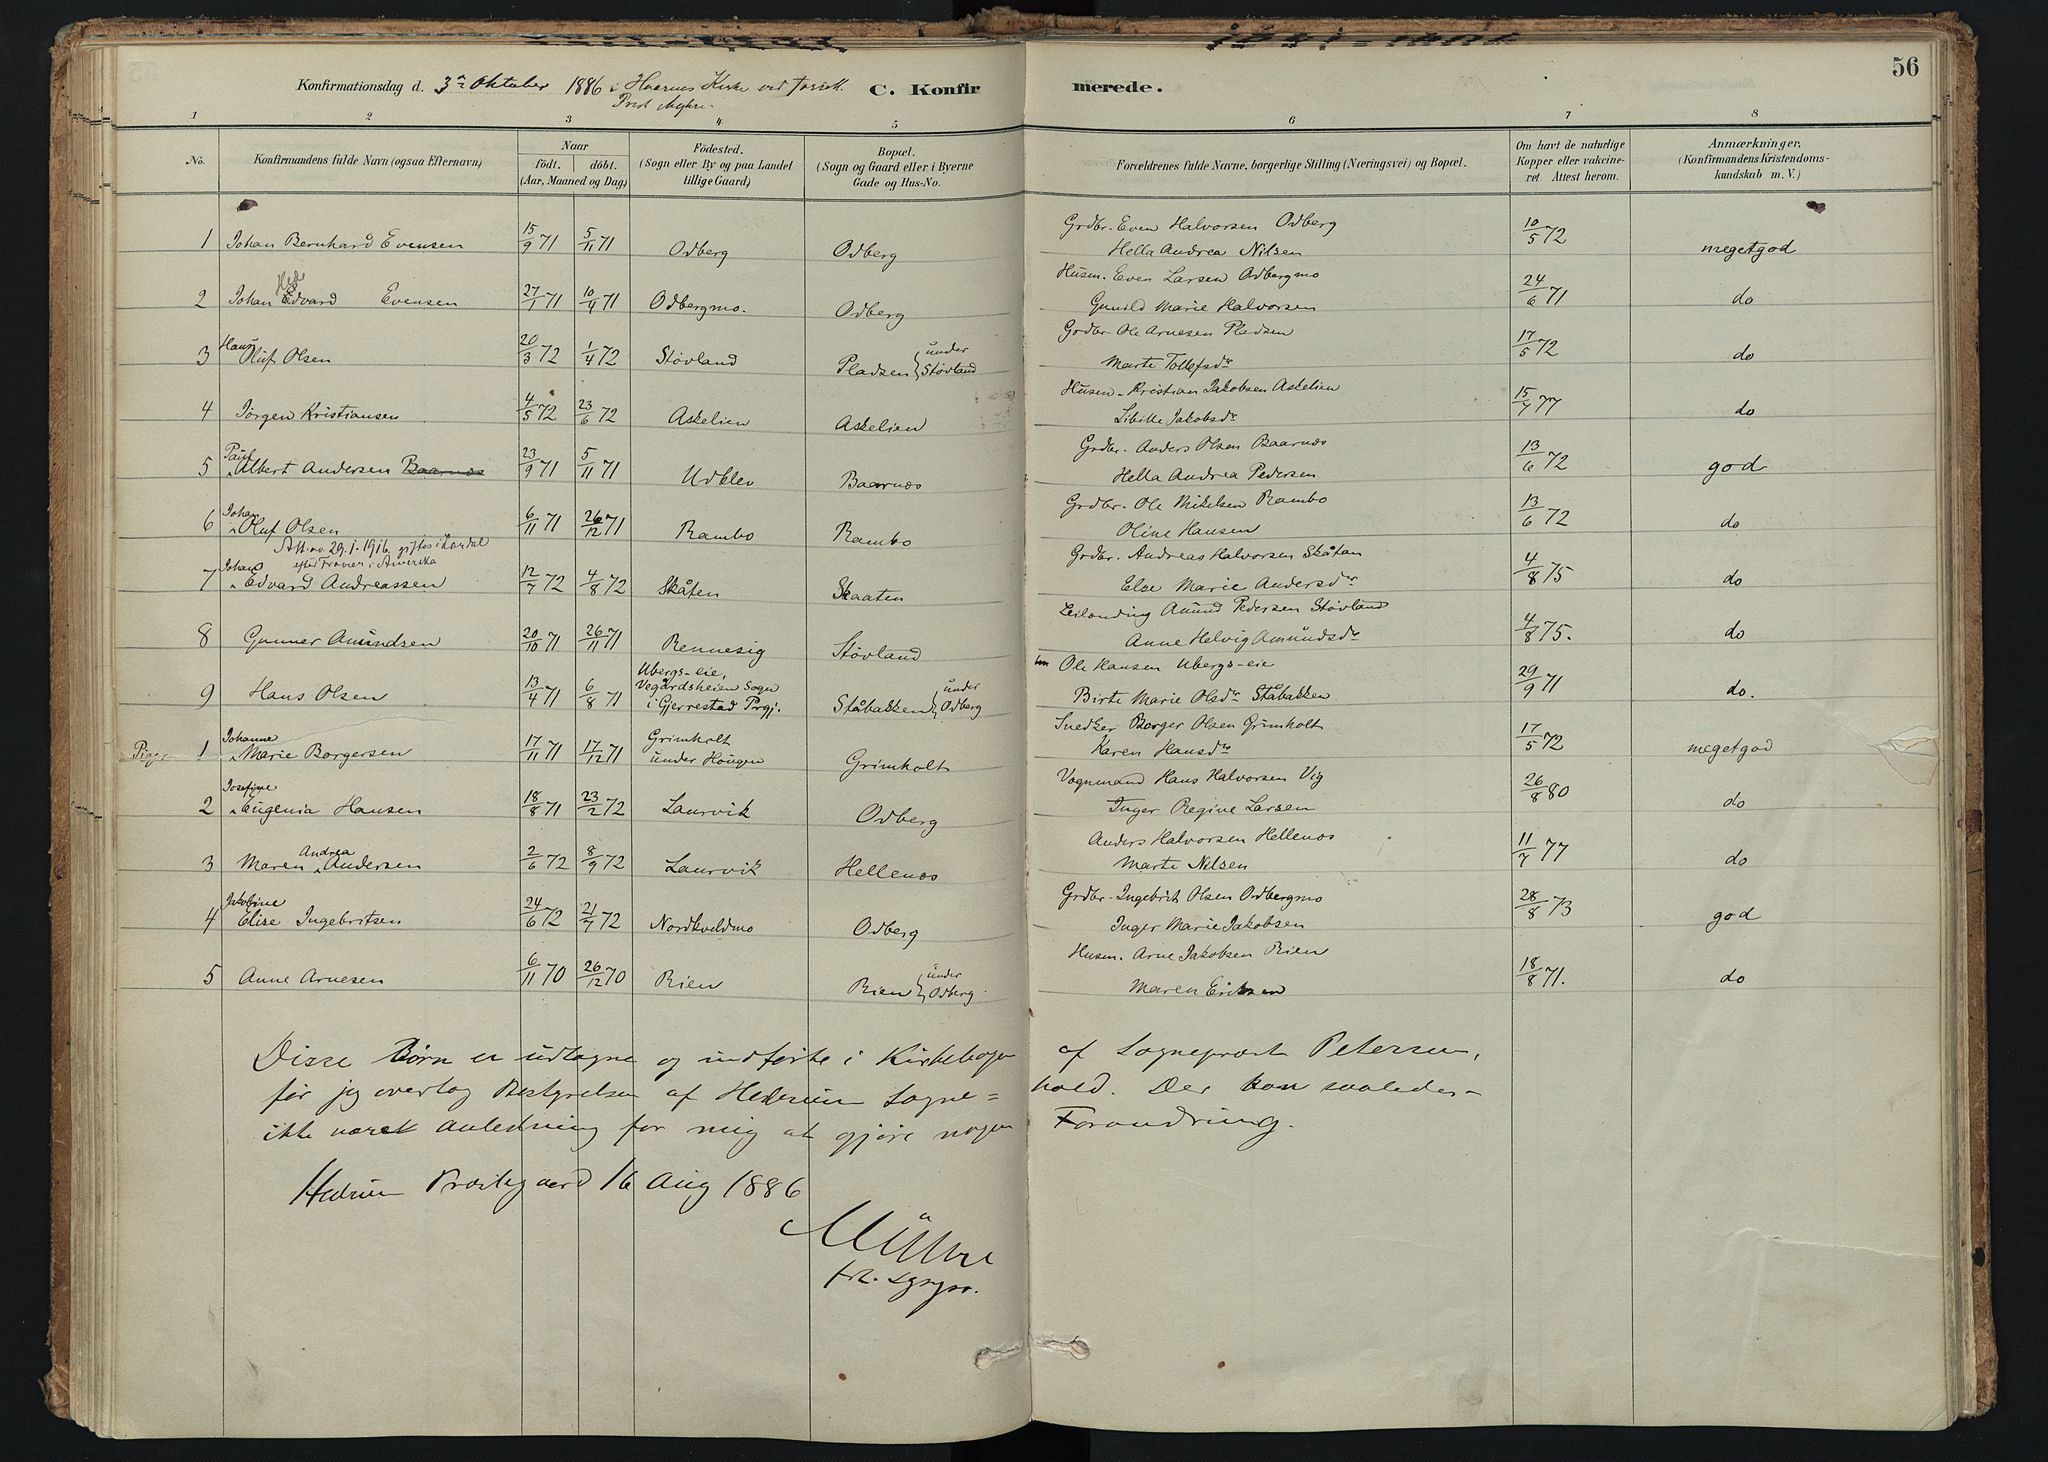 56
Konfirmationsdag d. 3die Oktober 1886 i Hvarnes Kirke ved
C. Konfirmerede.
1 2 3 4 5 6 7 8
No. Konfirmandens fulde Navn (ogsaa Efternavn) Naar født. døbt. (Aar, Maaned og Dag) Födested. (Sogn eller By og paa Landet tillige Gaard) Bopæl. (Sogn og Gaard eller i Byerne Gade og Hus-No. Forældrenes fulde Navne, borgerlige Stilling (Næringsvei) og Bopæl. Om havt de naturlige Kopper eller vakcineret. Attest herom. Anmærkninger, (Konfirmandens Kristendomskundskab m. V.)
1 Johan Bernhard Evensen 15/9 71 5/11 71 Odberg Odberg Grdbr. Even Halvorsen Odberg 10/5 72 megetgod
Hella Andrea Nilsen
2 Johan Edvard Evensen 27/1 71 10/4 71 Odbergmo. Odberg Husm. Even Larsen Odbergmo 24/6 71 do
Gunild Marie Halvorsen
3 Hans Oluf Olsen 20/3 72 1/4 72 Støvland Pladsen under Støvland Grdbr. Ole Arnesen Pladsen 17/5 72 do
Marte Tollefsdr
4 Jörgen Kristiansen 4/5 72 23/6 72 Askelien Askelien Husm. Kristian Jakobsen Askelien 15/7 77 do
Sibille Jakobsdr
5 Paul Albert Andersen Baarnæs 23/9 71 5/11 71 Udklev Baarnæs Grdbr. Anders Olsen Baarnæs 13/6 72 god
Hella Andrea Pedersen
6 Johan Oluf Olsen 6/11 71 26/12 71 Rambo Rambo Grdbr. Ole Mikelsen Rambo 13/6 72 do
Oline Hansen
Att. nr. 29.1.1916. giftes i Lardal
7 Johan Edvard Andreassen 12/7 72 4/8 72 Skåten Skaaten Grdbr. Andreas Halvorsen Skåtan 4/8 75 do
Else Marie Andersdr
8 Gunner Amundsen 20/10 71 26/11 71 Rennesig Støvland Leilænding Amund Pedersen Støvland 4/8 75. do
Anne Helvig Amundsdr
9 Hans Olsen 13/4 71 6/8 71 Ubergs-eie, Vegårdsheien Sogn i Gjerrestad Prgj. Ståbakken under Odberg Ole Hansen Ubergs-eie 29/9 71 do.
Birte Marie Olsdr Ståbakken
Piger 1 Johanne Marie Borgersen 17/11 71 17/12 71 Grimholt under Hougen Grimholt Snedker Borger Olsen Grimholt 17/5 72 megetgod
Karen Hansdr
2 Josefine Eugenia Hansen 18/8 71 23/2 72 Laurvik Odberg Vognmand Hans Halvorsen Vig 26/8 80 do
Inger Regine Larsen
3 Maren Andrea Andersen 2/6 72 8/9 72 Laurvik Hellenæs Anders Halvorsen Hellenæs 11/7 77 do
Marte Nilsen
4 Jakobine Elise Ingebritsen 24/6 72 21/7 72 Nordkveldmo Odberg Grdbr. Ingebrit Olsen Odbergmo 28/8 73 god
Inger Marie Jakobsen
5 Anne Arnesen 6/11 70 26/12 70 Rien Rien under Odberg. Husm. Arne Jakobsen Rien 18/8 71. do
Maren Eriksen
Disse Børn er udtagne og indførte i Kirkebogen af Sognepræst Petersen,
før jeg overtog Bestyrelsen af Hedrum Sogne=kald. Der har saaledes
ikke været Anledning for mig at gjøre nogen Forandring.
Hedrum Præstegaard 16 Aug 1886